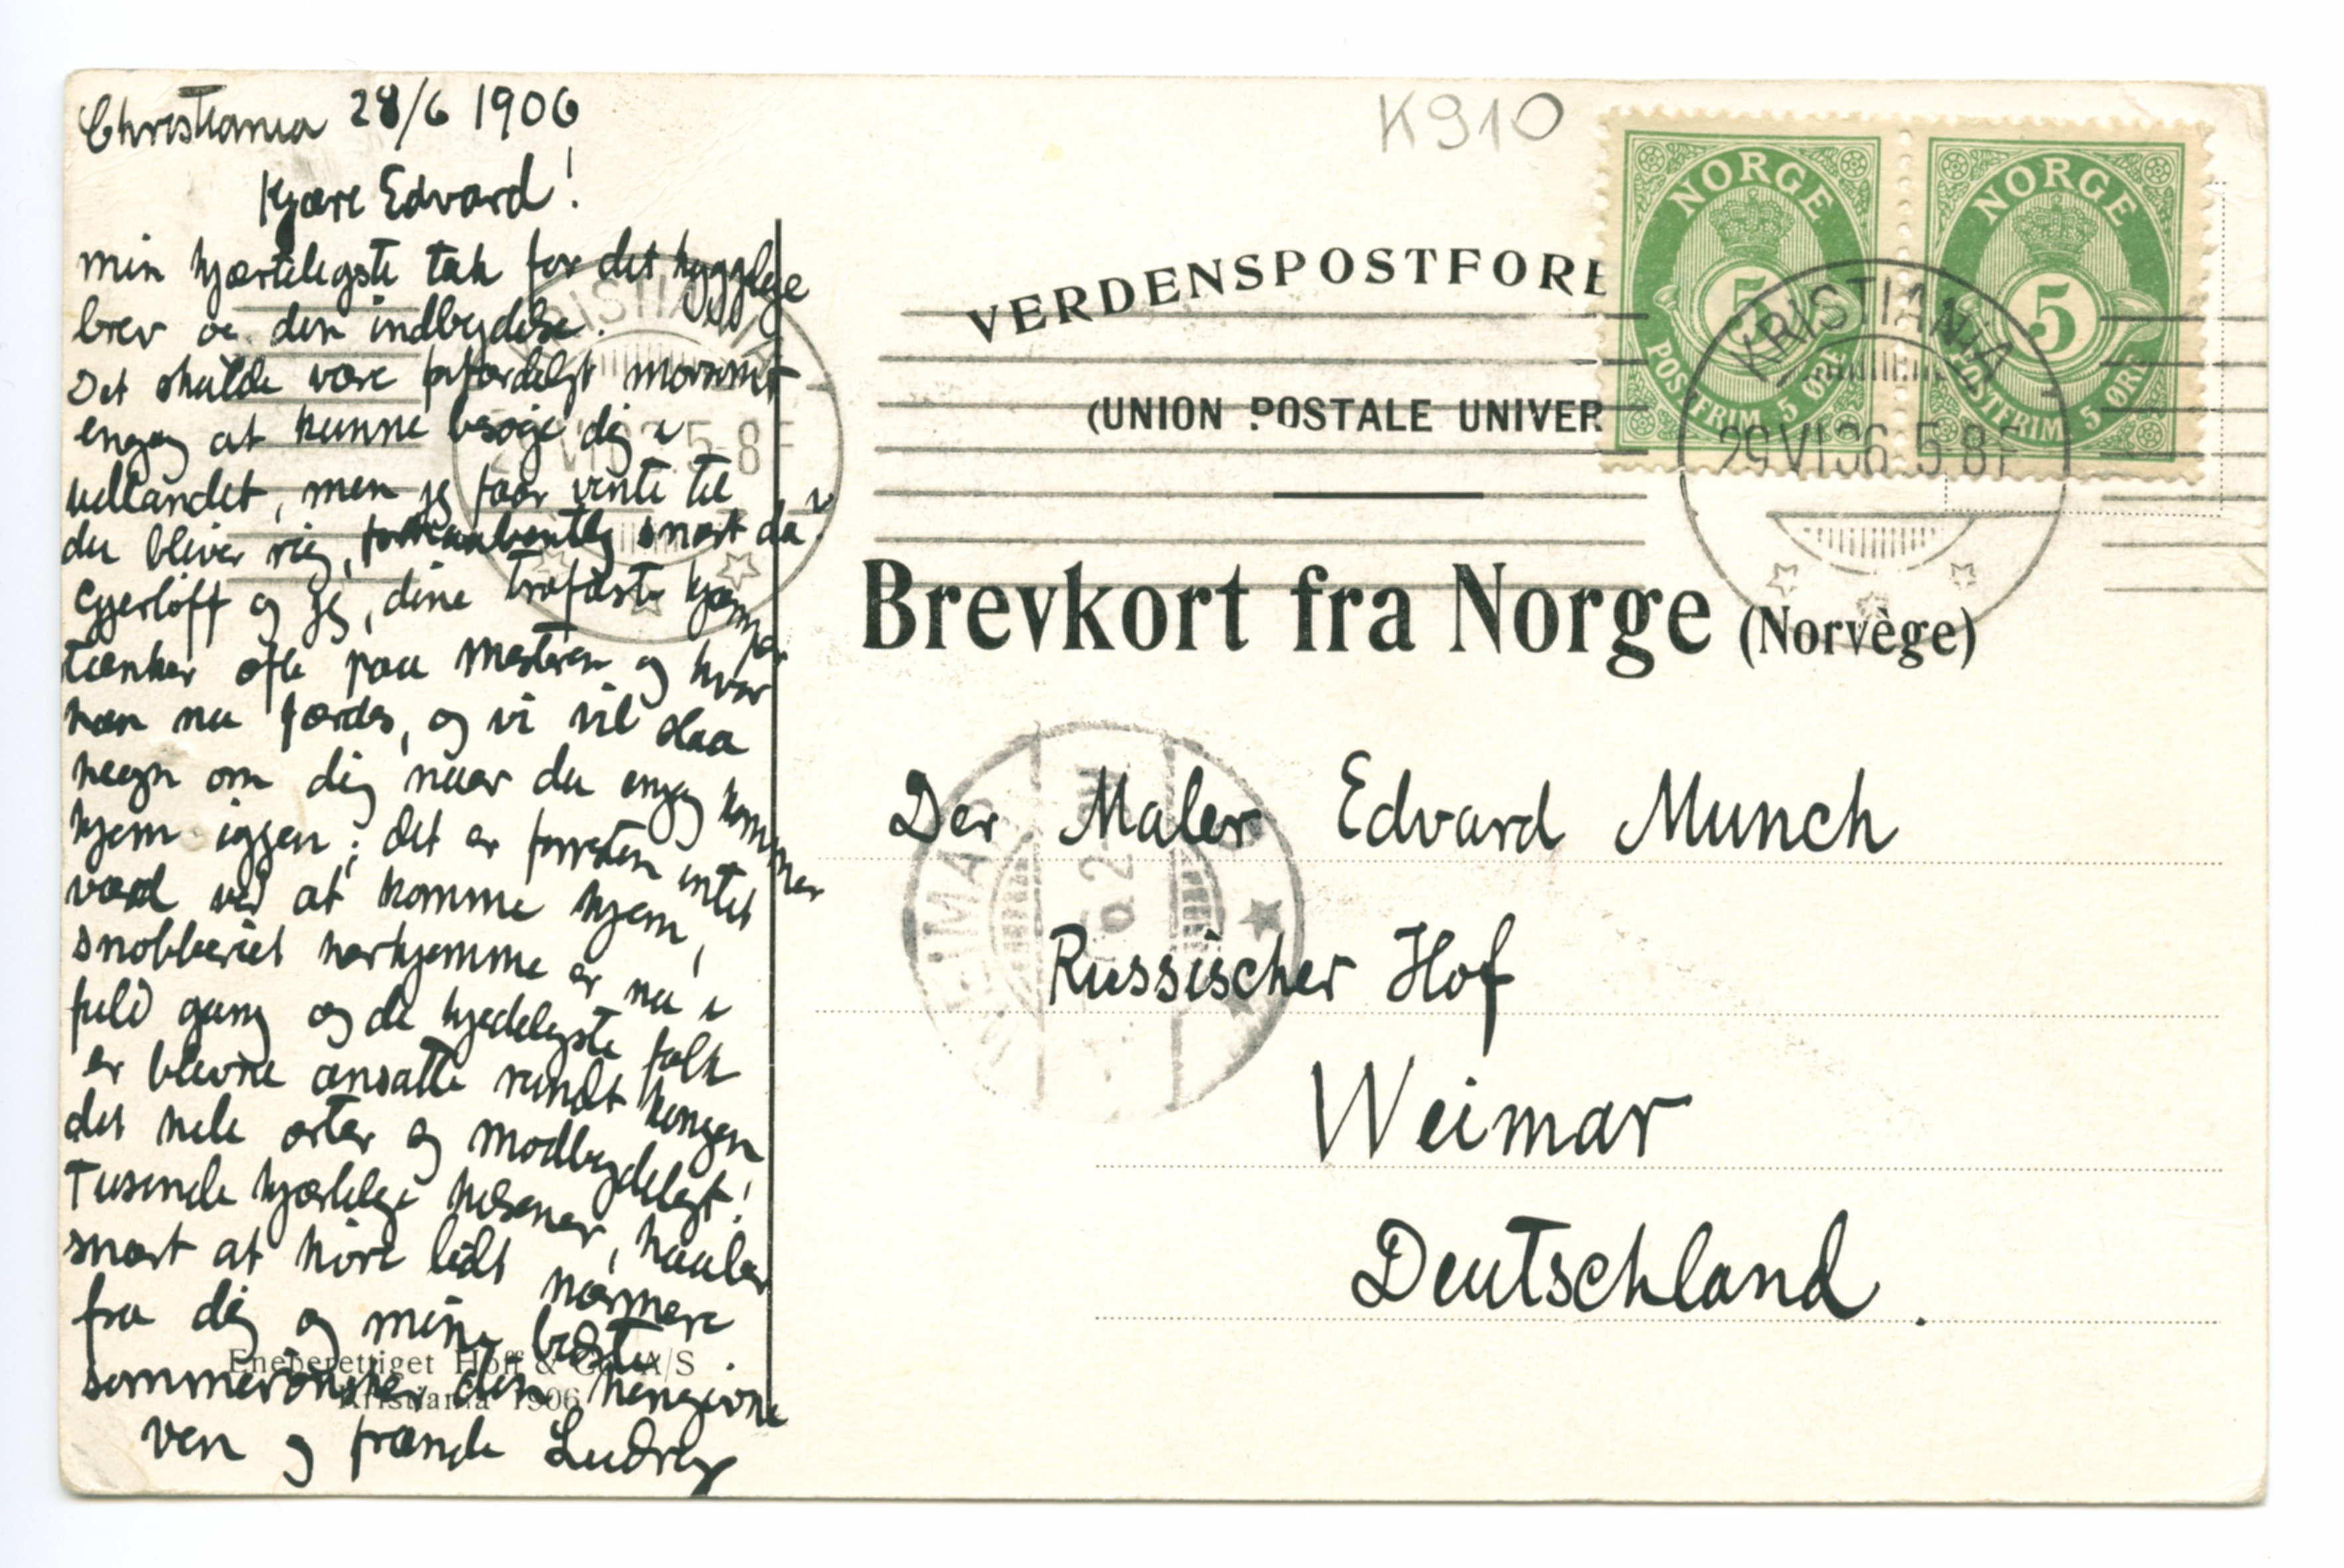 Christiania 28/6 1906
Kjære Edvard!
min hjærteligste tak for det hyggelige
brev og den indbydelse.
Det skulde være forfærdeligt morsomt
engag at kunne besøge dig i
udlandet, men jeg faar vente til
du bliver rig, forhaabentlig snart da!
Gjerløff og jeg, dine trofaste kjæmper
tænker ofte paa Mesteren og hvor
han nu færdes, og vi vil slaa
hegn om dig naar du engag kommer
hjem igjen; det er forresten intet
værd ved at komme hjem,
snobberiet herhjemme er nu i
fuld gang og de kjedeligste folk
er blevne ansatte rundt kongen
det hele arter og modbydeligt!
Tusende hjærtelige hilsener, haaber
snart at höre lidt nærmere
fra dig og mine bedste
sommerönsker din hengivne
ven og frænde Ludvig
Eneberettiget Hoff & Co. A/S
Kristiania 1906
K910
NORGE
5
POSTFRIM 5 ØRE
NORGE
5
POSTFRIM 5 ØRE
KRISTIANIA
29 VI 06 5-8 F
VERDENSPOSTFORE
(UNION POSTALE UNIVER
Brevkort fra Norge (Norvège)
Der Maler Edvard Munch
Russischer Hof
Weimar
Deutschland.
WEIMAR
KRISTIANIA
5-8 F